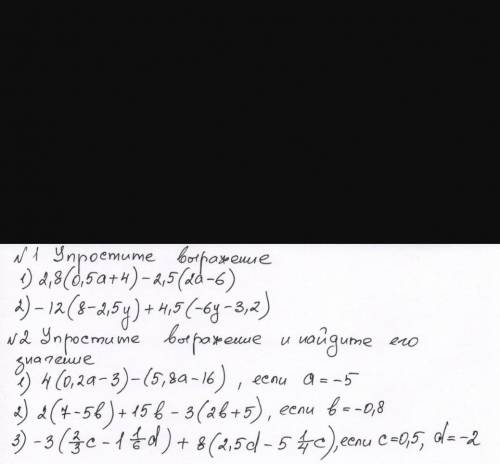 №1 Упростите выражение
1) 2,8(0,5a+4)-2,5(2a-6)
2) -12(8-2,5y)+4,5(-6y-3,2)
№2 Упростите выражение и найдите его
значение
1) 4(0,2a-3)-(5,8a-16), если a=-5
2) 2(7-5b)+15b-3(2b+5), если b=-0,8
3) -3(2/3c-1 1/6d)+8(2,5d-5 1/4c), если c=0,5, d=-2